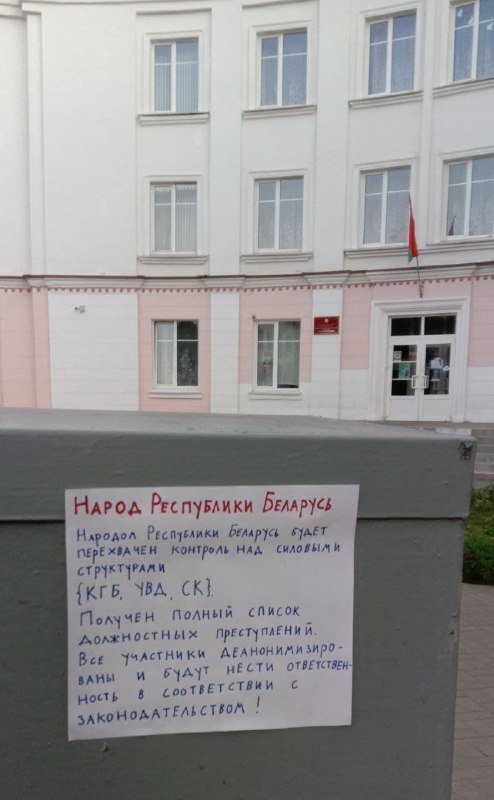 Народ Республики Беларусь
Народол Республики Беларусь будет
перехвачен контроль над силовыми
структурами
{КГБ, УВД, СК}.
Получен полный список
должностных преступлений.
Все участники деанонимизиро-
ваны и будут нести ответствен-
ность в соответствии с
законодательством !